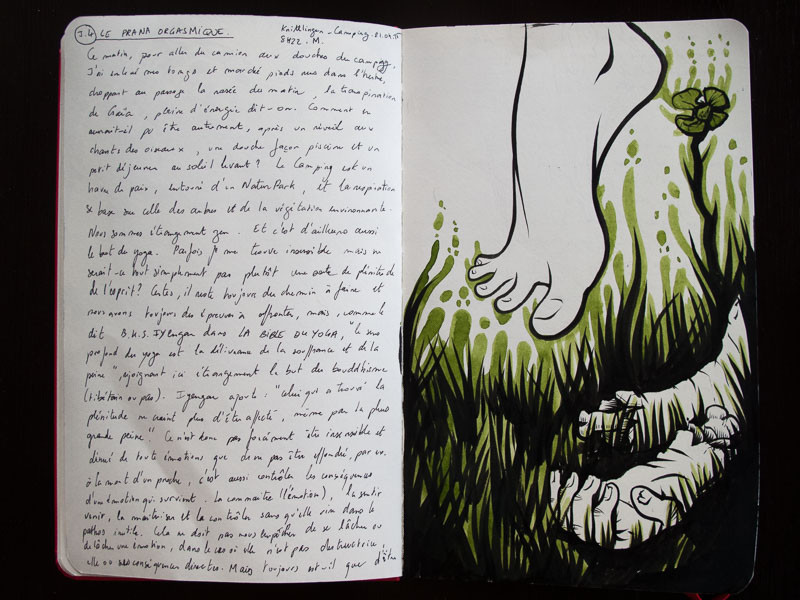 I.4 LE PRANA ORGASMIQUE.
Knittlingen - Camping - 01.04.
8H22. M.
Ce matin, pour aller du camion aux douches du camping,
J'ai enlevé mes tongs et marché pieds nus dans l'herbe,
choppant au passage la rosée du matin, la transpiration
de Gaïa, pleine d'énergie dit-on. Comment en
aurait-il pu être autrement, après un réveil aux
chants des oiseaux, une douche façon piscine et un
petit déjeuner au soleil levant? Le Camping est un
havre de paix, entouré d'un NaturPark, et la respiration
se base sur celle des arbres et de la végétation environnante.
Nous sommes étrangement zen. Et c'est d'ailleurs aussi
le but du yoga. Parfois je me trouve insensible mais ne
serait-ce tout simplement pas plutôt une sorte de plénitude
de l'esprit? Certes, il reste toujours du chemin à faire et
nous avons toujours des épreuves à affronter, mais, comme le
dit B.K.S. IYENGAR dans LA BIBLE DU YOGA, "le sens
profond du yoga est la délivrance de la souffrance et de la
peine", rejoignant ici étrangement le but du bouddhisme
(tibétain ou pas). Iyengar ajoute: "celui qui a trouvé la
plénitude ne craint plus d'être affecté, même par la plus
grande peine". Ce n'est donc pas forcément être insensible et
dénué de toute émotions que de ne pas être effondré, par ex.
à la mort d'un proche, c'est aussi contrôler les conséquences
d'un émotion qui survient. La connaître (l'émotion), la sentir
venir, la maîtriser et la contrôler sans qu'elle vire dans le
pathos inutile. Cela ne doit pas nous empêcher de se lâcher ou
de lâcher une émotion, dans le cas où elle n'est pas destructrice,
elle ou ses conséquences directes. Mais toujours est-il que d'être